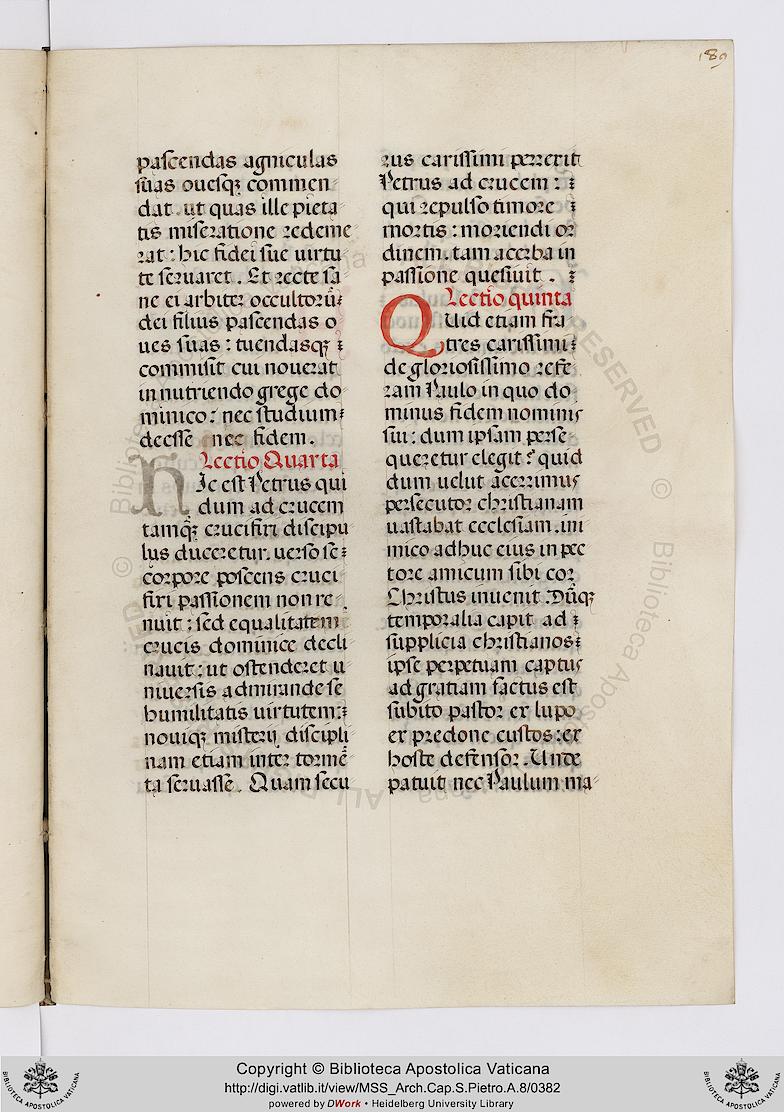 189
pascendas agniculas
suas ouesqꝫ commen
dat. ut quas ille pieta
tis miseratione redeme
rat: hic fidei sue uirtu
te seruaret. Et recte sa
ne ei arbiter occultorū
dei filius pascendas o
ues suas: tuendasqꝫ
commisit cui nouerat
in nutriendo grege do
minico: nec studium
deesse nec fidem.
Lectio Quarta
Hic est Petrus qui
dum ad crucem
tamqꝫ̄ crucifixi discipu
lus duceretur. uerso se
corpore poscens cruci
fixi passionem non re
nuit: sed equalitatem
crucis dominice decli
nauit: ut ostenderet u
niuersis admirande se
humilitatis uirtutem:
nouiqꝫ misterij discipli
nam etiam inter tormē
ta seruasse. Quam secu
rus carissimi perrexit
Petrus ad crucem:
qui repulso timore
mortis: moriendi or
dinem. tam acerba in
passione quesiuit.
Lectio quinta
Quid etiam fra
tres carissimi
de gloriosissimo refe
ram Paulo in quo do
minus fidem nominis
sui: dum ipsam perse
queretur elegit? quid
dum uelut acerrimus
persecutor christianam
uastabat ecclesiam. ini
mico adhuc eius in pec
tore amicum sibi cor
Christus inuenit. Dūqꝫ
temporalia capit ad
supplicia christianos
ipse perpetuam captus
ad gratiam factus est
subito pastor ex lupo
ex predone custos: ex
hoste defensor. Unde
patuit nec Paulum ma
Copyright © Biblioteca Apostolica Vaticana
http://digi.vatlib.it/view/MSS_Arch.Cap.S.Pietro.A.8/0382
powered by DWork • Heidelberg University Library
BIBLIOTECA APOSTOLICA VATICANA
BIBLIOTECA APOSTOLICA VATICANA